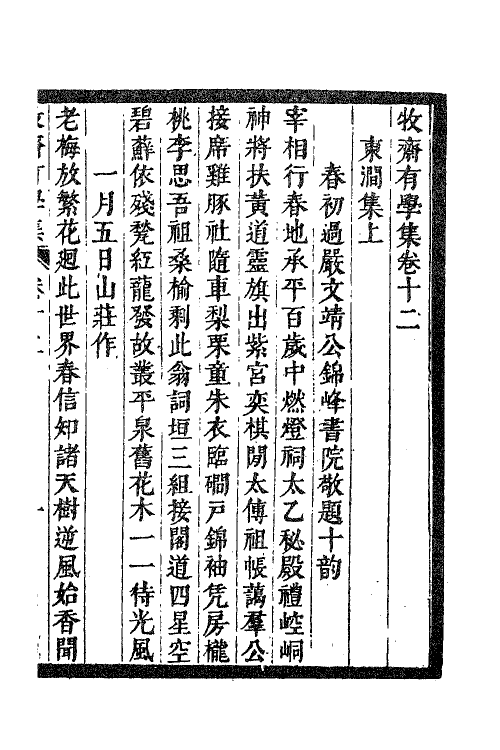 牧齋有學集卷十二
東澗集上
春初過嚴文靖公錦峰書院敬題十韵
宰相行春地承平百歲中燃燈祠太乙秘殿禮崆峒
神將扶黃道靈旗出紫宮奕棋閒太傅祖帳藹羣公
接席雞豚社隨車梨栗童朱衣臨磵戸錦袖凭房櫳
桃李思吾祖桑榆剩此翁詞垣三組接閣道四星空
碧蘚依殘甃紅龍發故叢平泉舊花木一一待光風
一月五日山莊作
老梅放繁花迴此世界春信知諸天樹逆風始香聞